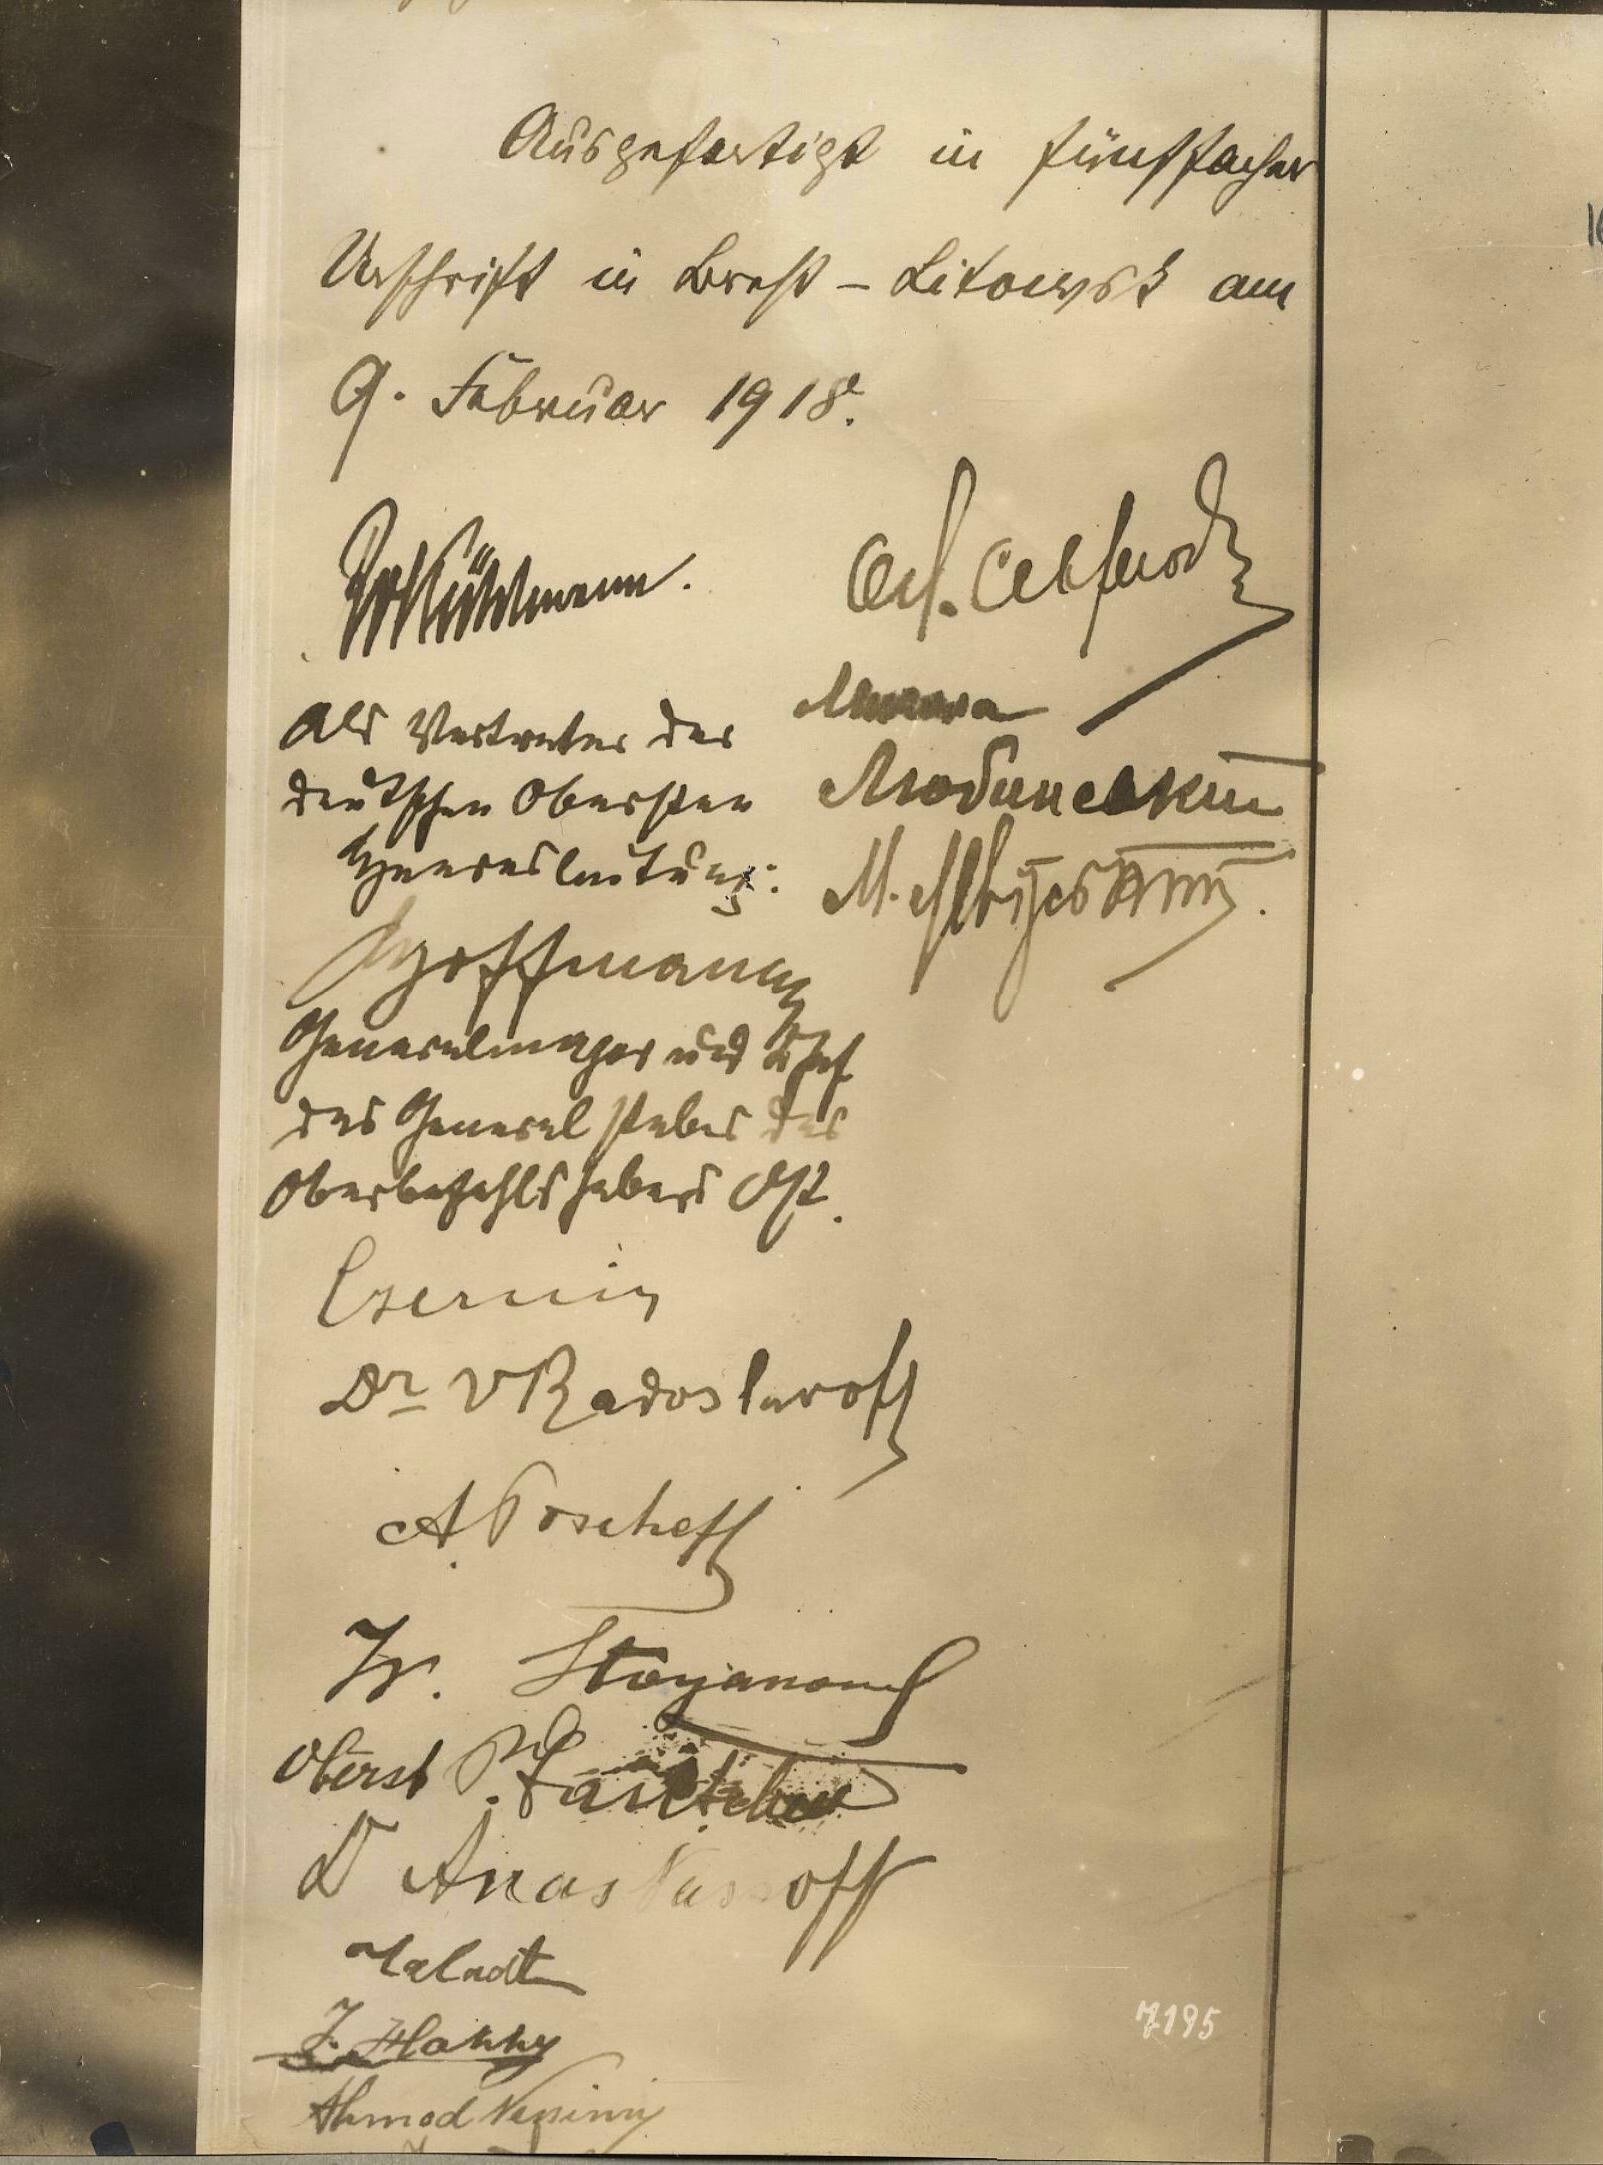 Ausgefertigt in fünffacher
Urschrift in Brest-Litowsk am
9. Februar 1918.
Kühlmann.
Ол. Севрюк
Als Vertreter der
deutschen Obersten
Heeresleitung:
Любинський
М. Левицький.
Hoffmann
Generalmajor und Chef
des Generalstabes des
Oberbefehlshabers Ost.
Czernin
Dr VRadoslawoff
A. Toscheff
Iv. Stoyanovf
Oberst P. Gantschew
Dr Anastassoff
Talaat
I. Hakky
Ahmed Nessimy
7195